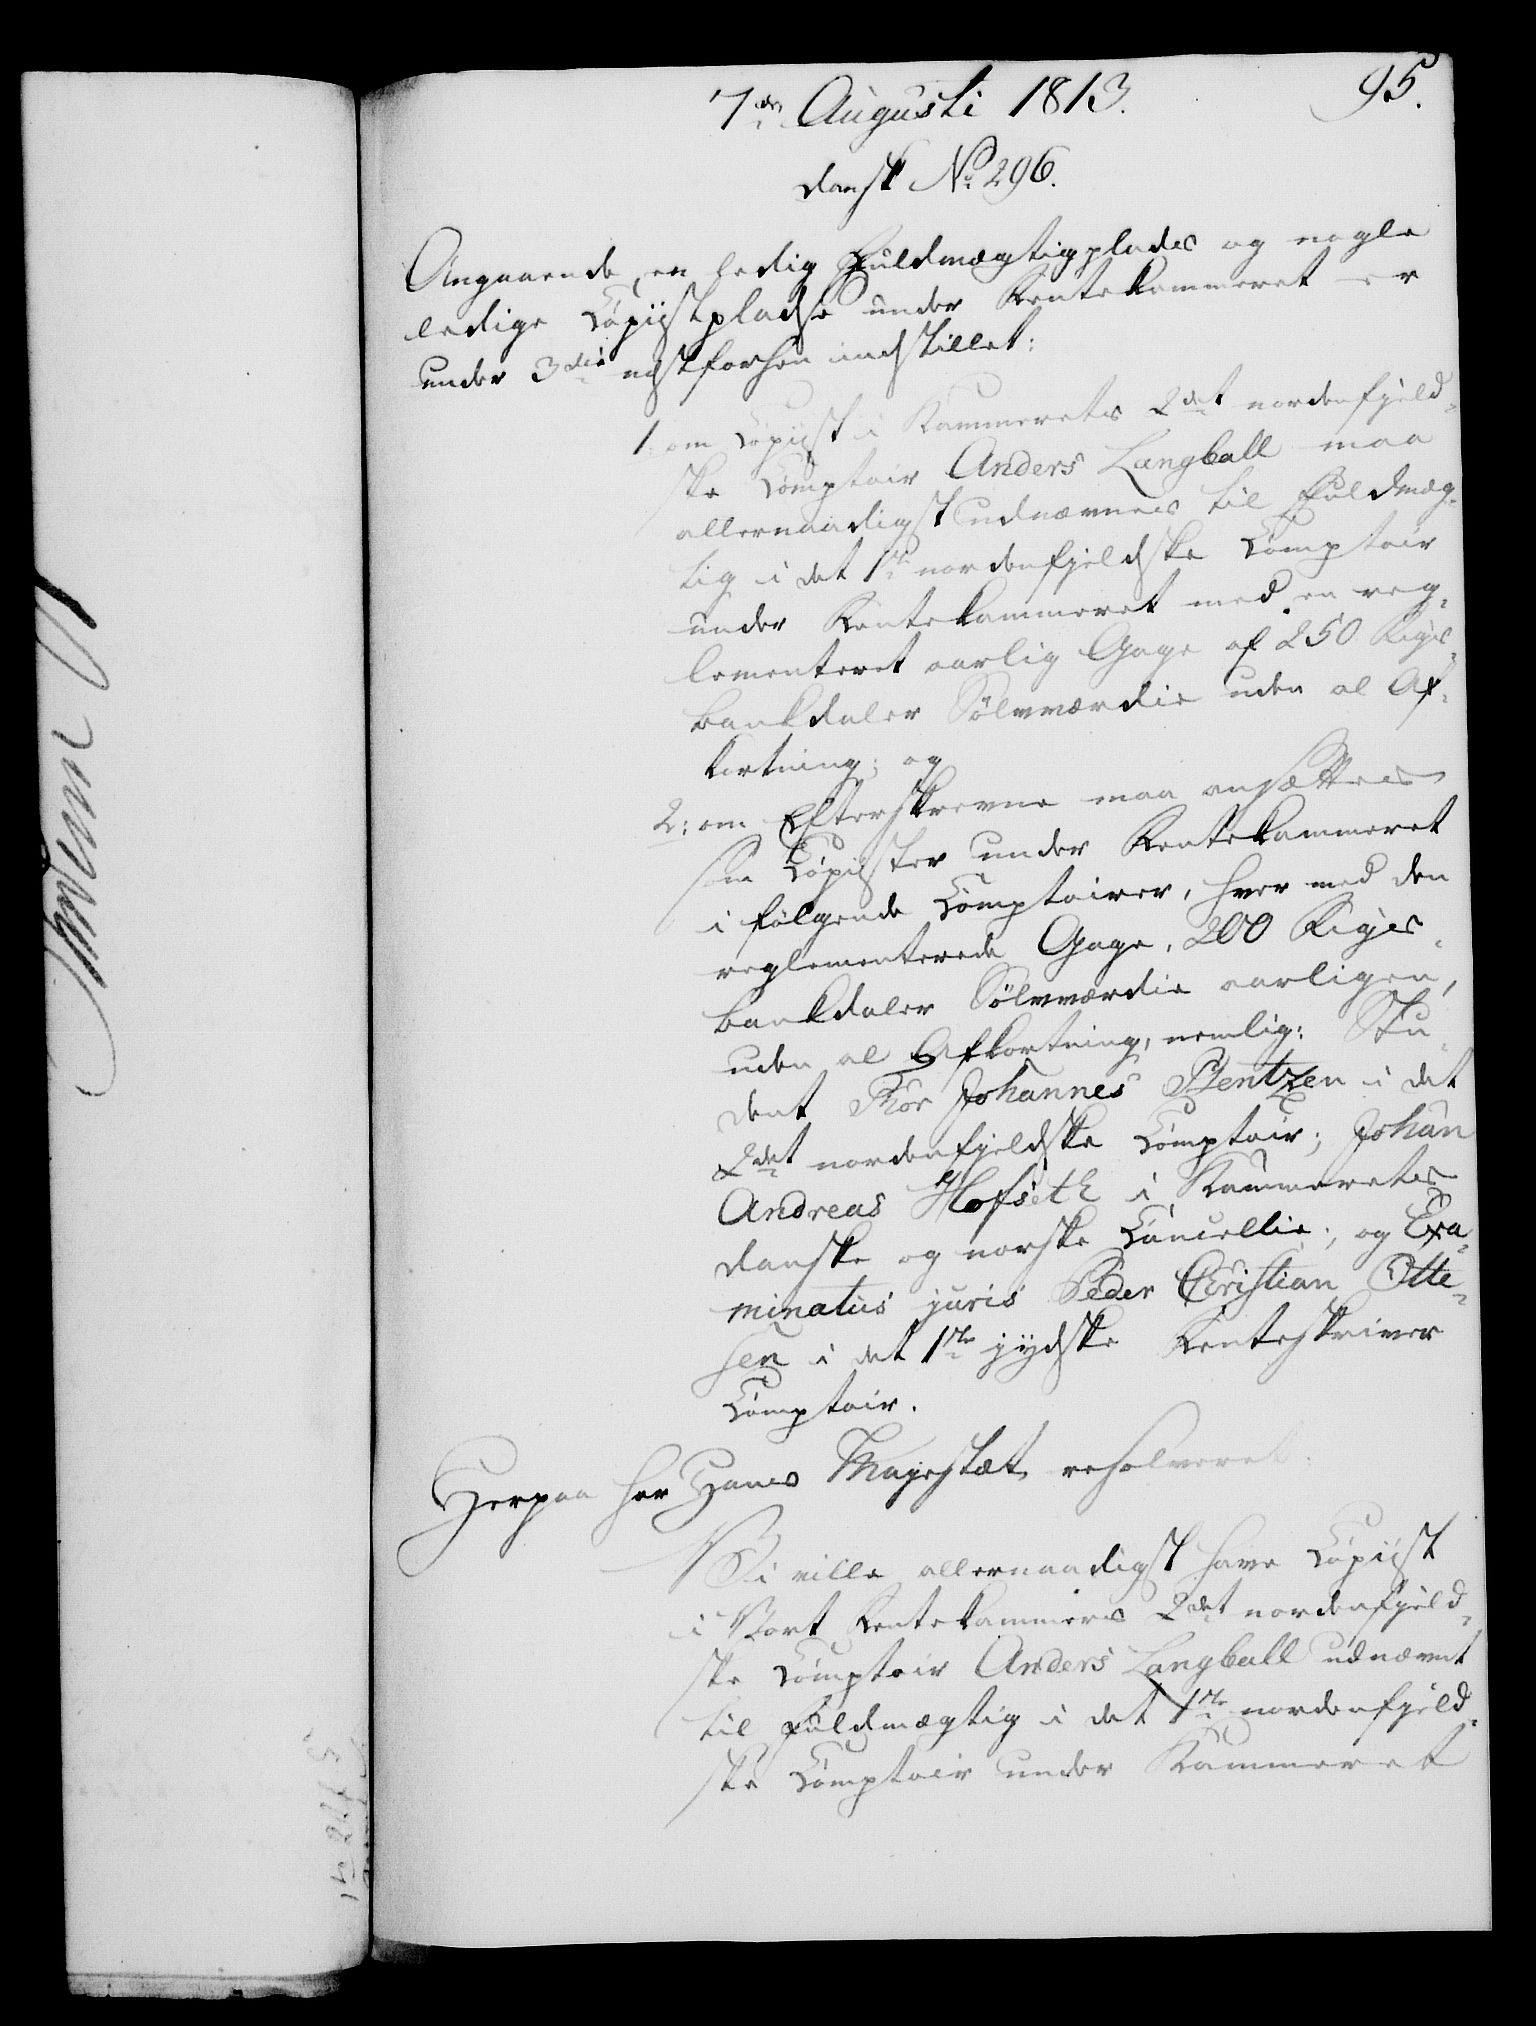 7de Augusti 1813.
95.
dansk No 296.
Angaaende en ledig Fuldmægtigplads og nogle
ledige Copiistpladse under Rentekammeret er
under 3die næstforhen indstillet:
1: om Copiist i Kammerets 2det nordenfjeld-
ske Comptoir Anders Langball maa
allernaadigst udnævnes til Fuldmæg-
tig i det 1te nordenfjeldske Comptoir
under Rentekammeret med en reg-
lementeret aarlig Gage af 250 Rigs-
bankdaler Sølvværdie uden al Af-
kortning; og
2: om Efterskrevne maa ansættes
som Copiister under Rentekammeret
i følgende Comptoirer, hver med den
reglementerede Gage, 200 Rigs-
bankdaler Sølvværdie aarligen,
uden al Afkortning, nemlig: Stu-
dent Thor Johannes Bentzen i det
2det nordenfjeldske Comptoir; Johan
Andreas Hofseth i Kammerets
danske og norske Cancellie; og Exa-
minatus juris Peder Christian Otte-
sen i det 1te jydske Renteskriver
Comptoir.
Herpaa har Hans Majestæt resolveret:
Vi ville allernaadigst have Copiist
i Vort Rentekammers 2det nordenfjeld-
ske Comptoir Anders Langball udnævnt
til Fuldmægtig i det 1te nordenfjeld-
ske Comptoir under Kammeret